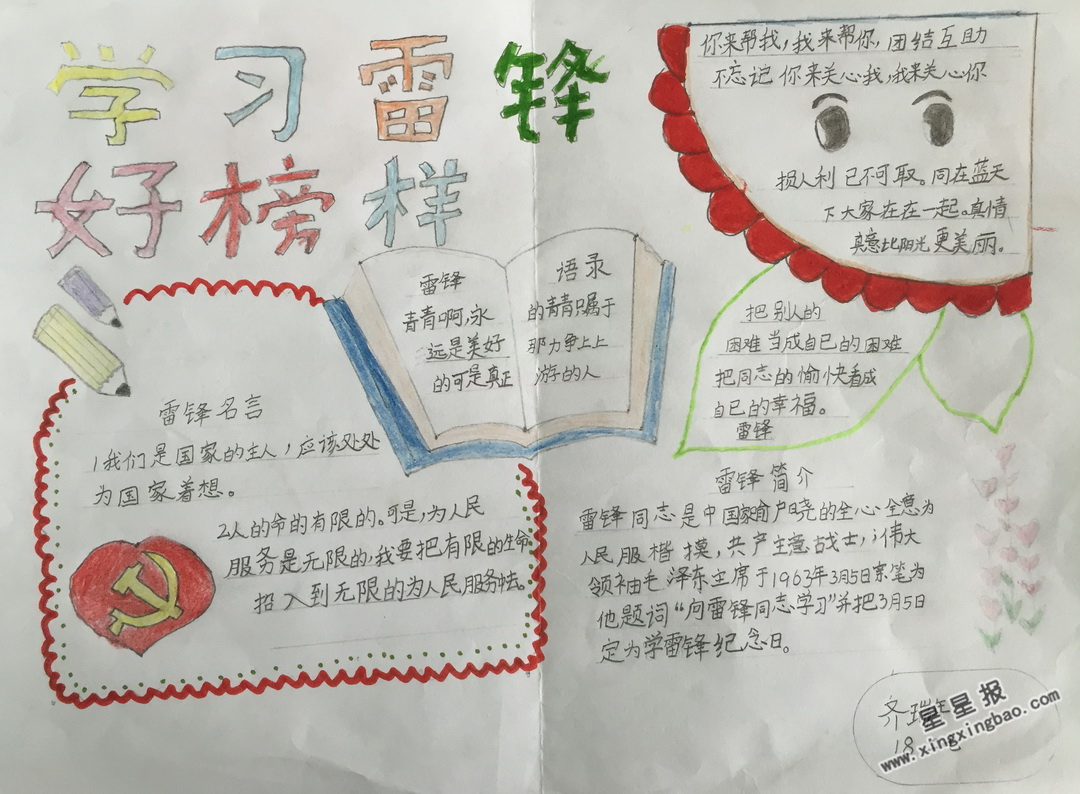 学习雷锋
好榜样
你来帮我，我来帮你，团结互助
不忘记你来关心我，我来关心你
损人利己不可取。同在蓝天
下大家在在一起。真情
真意比阳光更美丽。
雷锋
青青啊，永
远是美好
的可是真正
语录
的青青嘱于
那力争上上
游的人
把别人的
困难当成自己的困难
把同志的愉快看成
自己的幸福。
雷锋
雷锋名言
1我们是国家的主人，应该处处
为国家着想。
2人的命的有限的。可是，为人民
服务是无限的，我要把有限的生命
招入到无限的为人民服务去。
雷锋简介
雷锋同志是中国家俞户晓的全心全意为
人民服楷摸，共产主意战士，伟大
领袖毛泽东主席于1963年3月5日亲笔为
他题词“向雷锋同志学习”并把3月5日
定为学雷锋纪念日。
齐瑞
18
星星报
www.xingxingbao.com